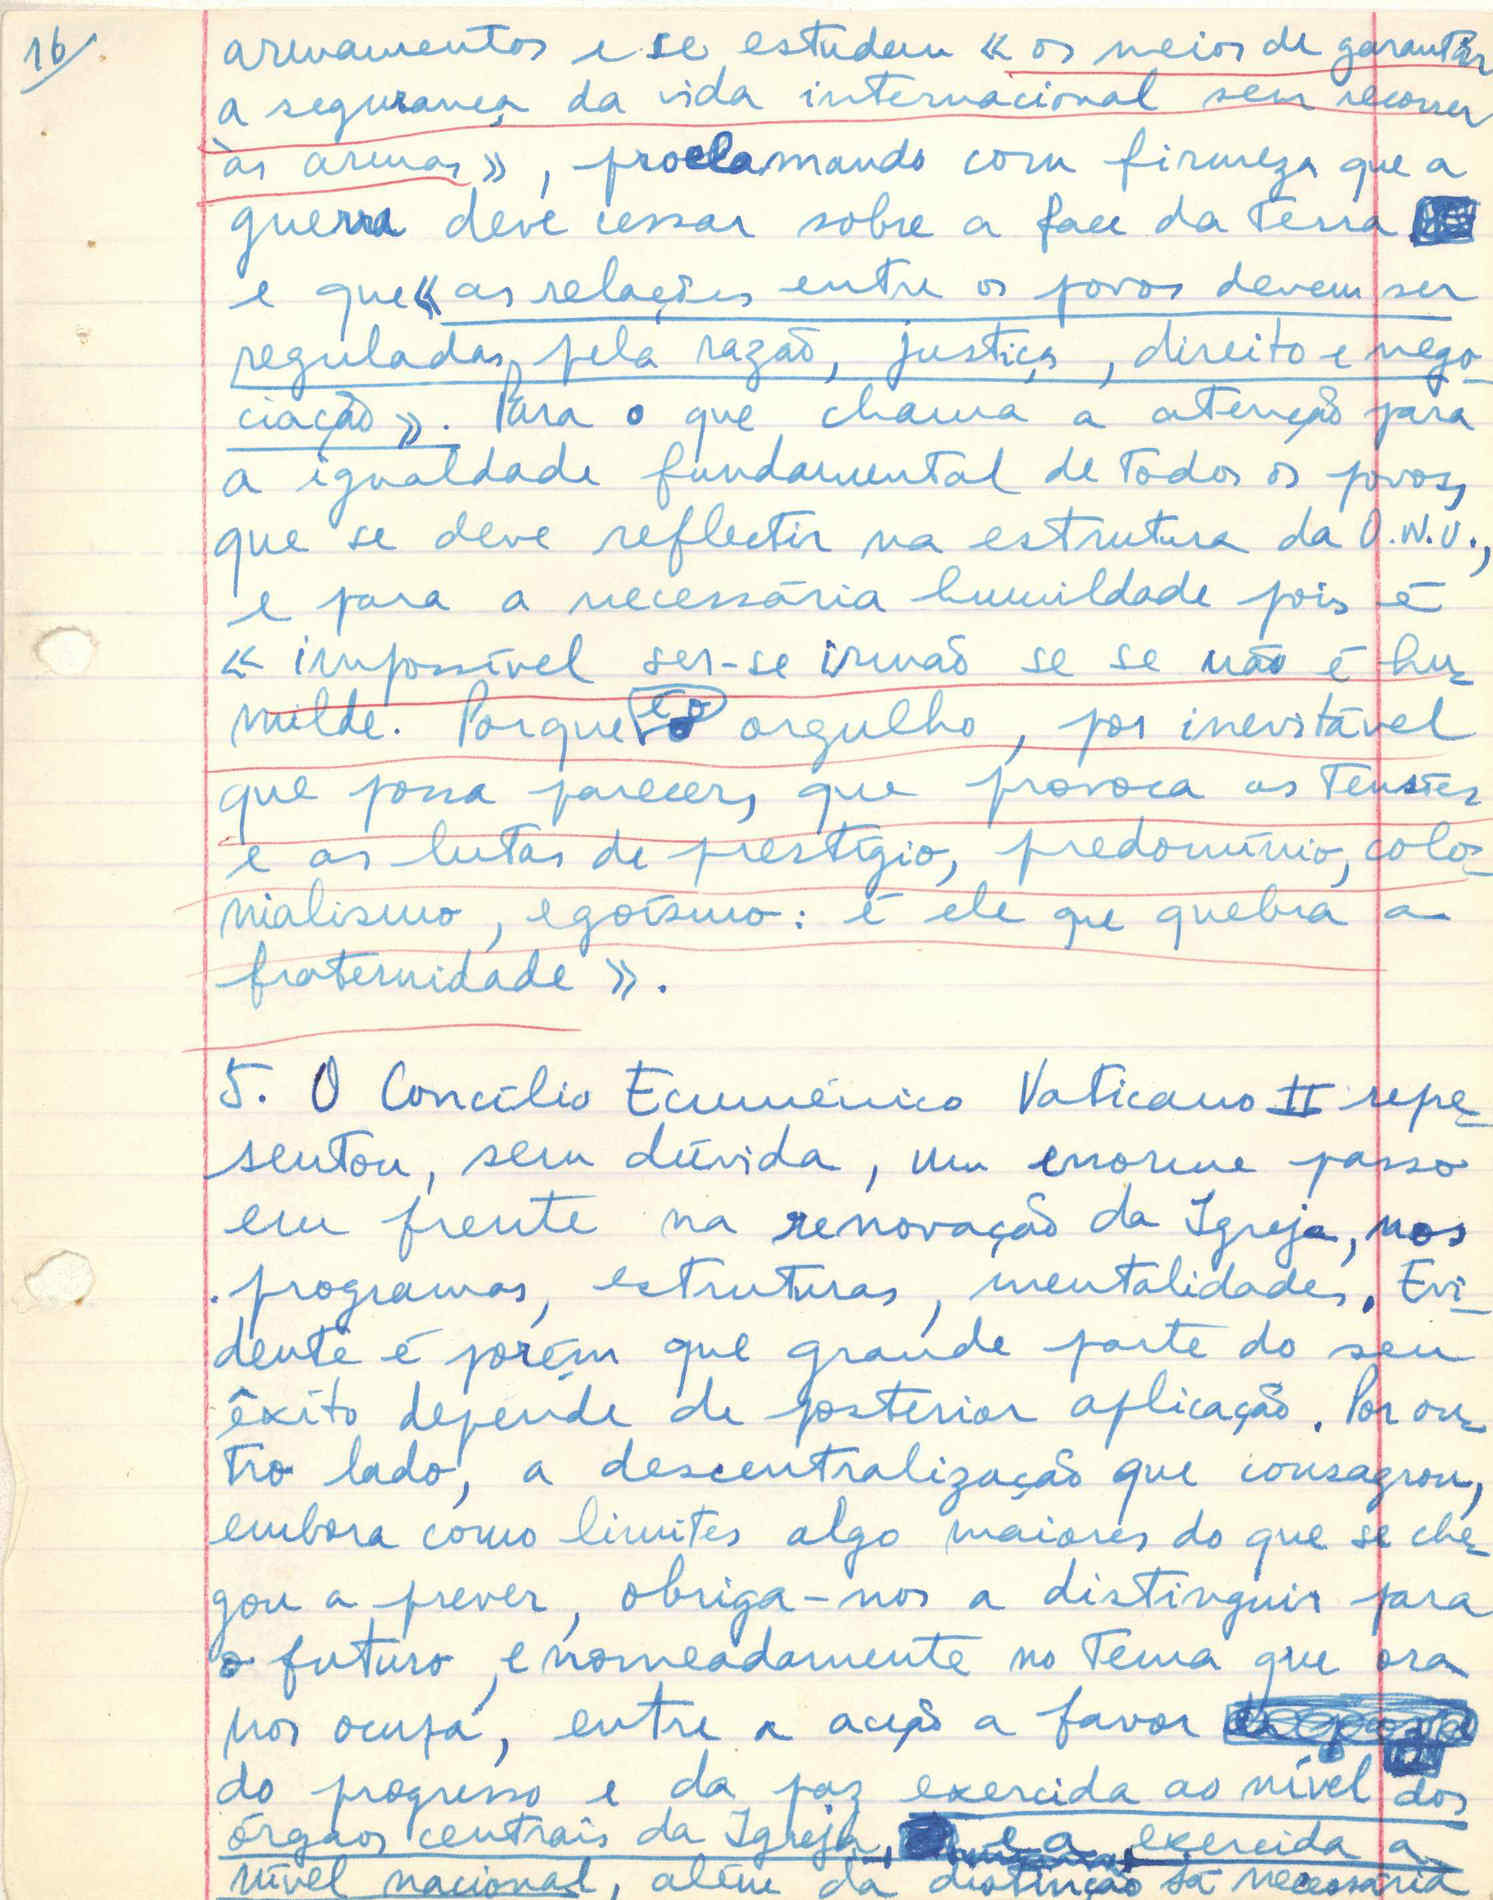 16
armamentos e se estudem « os meios de garantir
a segurança da vida internacional sem recorrer
às armas », proclamando com firmeza que a
guerra deve cessar sobre a face da Terra
e que « as relações entre os povos devem ser
reguladas pela razão, justiça, direito e nego-
ciação ». Para o que chama a atenção para
a igualdade fundamental de todos os povos,
que se deve reflectir na estrutura da O.N.U.,
e para a necessária humildade pois é
« impossível ser-se irmão se se não é hu-
milde. Porque é o orgulho, por inevitável
que possa parecer, que provoca as tensões
e as lutas de prestígio, predomínio, colo-
nialismo, egoísmo: é ele que quebra a
fraternidade ».
5. O Concílio Ecuménico Vaticano II repe-
sentou, sem dúvida, um enorme passo
em frente na renovação da Igreja, nos
programas, estruturas, mentalidades. Evi-
dente é porém que grande parte do seu
êxito depende de posterior aplicação. Por ou-
tro lado, a descentralização que consagrou,
embora como limites algo maiores do que se che-
gou a prever, obriga-nos a distinguir para
o futuro, e nomeadamente no tema que ora
nos ocupa, entre a acção a favor
do progresso e da paz exercida ao nível dos
órgãos centrais da Igreja, e a exercida a
nível nacional, além da distinção já necessária